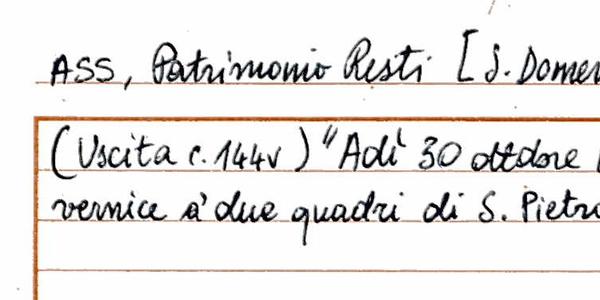 ASS, Patrimonio Resti [S. Domen
(Uscita c. 144v) "Adì 30 ottobre
vernice a' due quadri di S. Pietro